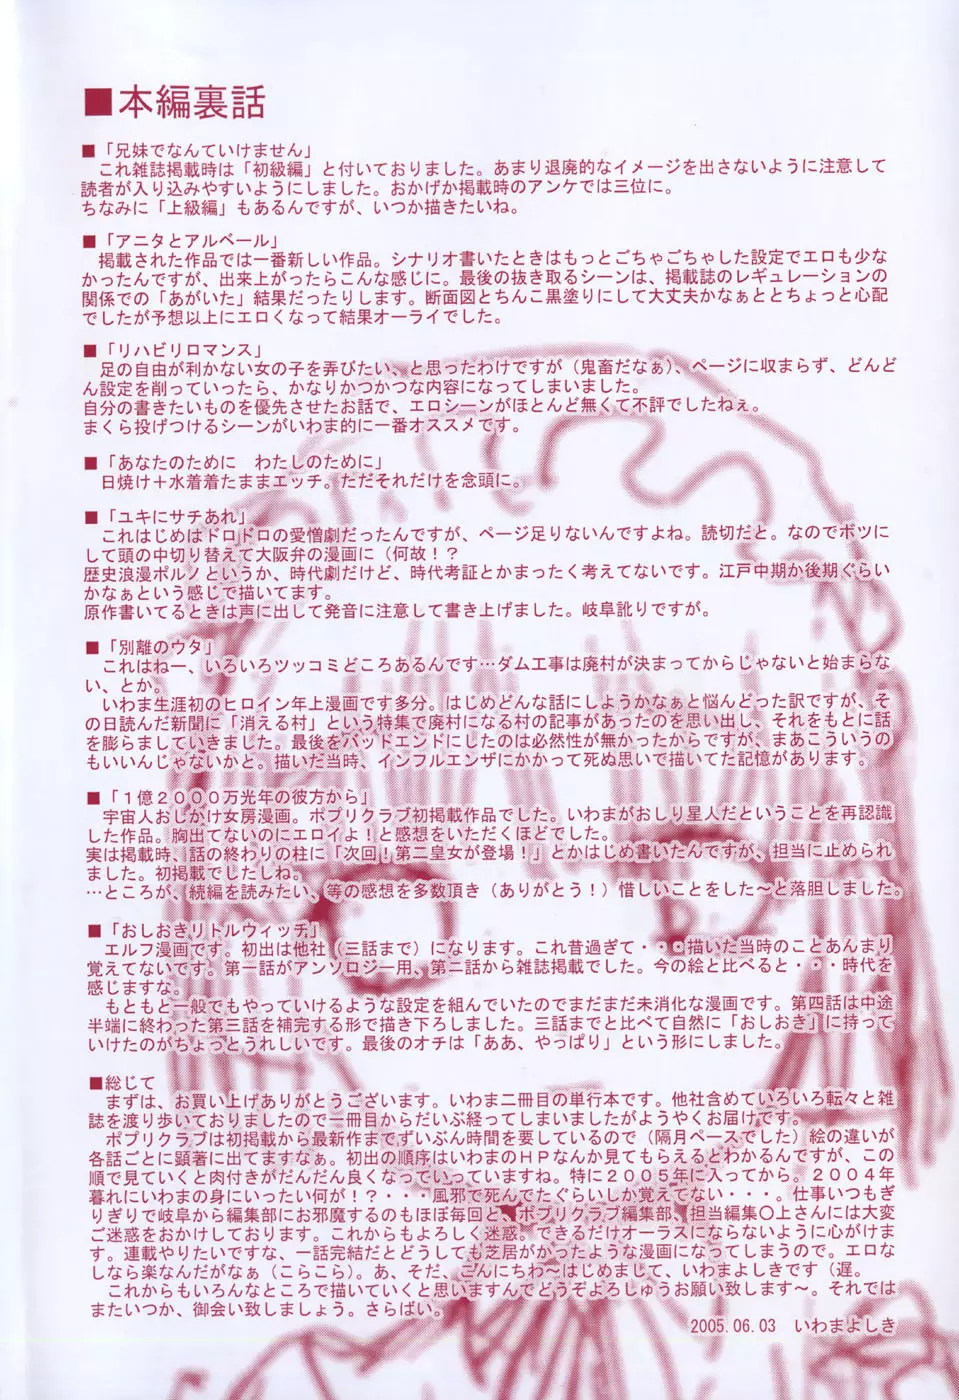 ■本編裏話
■「兄妹でなんていけません」
これ雑誌掲載時は「初級編」と付いておりました。あまり退廃的なイメージを出さないように注意して
読者が入り込みやすいようにしました。おかげか掲載時のアンケでは三位に。
ちなみに「上級編」もあるんですが、いつか描きたいね。
■「アニタとアルベール」
掲載された作品では一番新しい作品。シナリオ書いたときはもっとごちゃごちゃした設定でエロも少な
かったんですが、出来上がったらこんな感じに。最後の抜き取るシーンは、掲載誌のレギュレーションの
関係での「あがいた」結果だったりします。断面図とちんこ黒塗りにして大丈夫かなぁととちょっと心配
でしたが予想以上にエロくなって結果オーライでした。
■「リハビリロマンス」
足の自由が利かない女の子を弄びたい、と思ったわけですが（鬼畜だなぁ）、ページに収まらず、どんど
ん設定を削っていったら、かなりかつかつな内容になってしまいました。
自分の書きたいものを優先させたお話で、エロシーンがほとんど無くて不評でしたねぇ。
まくら投げつけるシーンがいわま的に一番オススメです。
■「あなたのために　わたしのために」
日焼け＋水着着たままエッチ。ただそれだけを念頭に。
■「ユキにサチあれ」
これはじめはドロドロの愛憎劇だったんですが、ページ足りないんですよね。読切だと。なのでボツに
して頭の中切り替えて大阪弁の漫画に（何故！？
歴史浪漫ポルノというか、時代劇だけど、時代考証とかまったく考えてないです。江戸中期か後期ぐらい
かなぁという感じで描いてます。
原作書いてるときは声に出して発音に注意して書き上げました。岐阜訛りですが。
■「別離のウタ」
これはねー、いろいろツッコミどころあるんです…ダム工事は廃村が決まってからじゃないと始まらな
い、とか。
いわま生涯初のヒロイン年上漫画です多分。はじめどんな話にしようかなぁと悩んどった訳ですが、そ
の日読んだ新聞に「消える村」という特集で廃村になる村の記事があったのを思い出し、それをもとに話
を膨らましていきました。最後をバッドエンドにしたのは必然性が無かったからですが、まあこういうの
もいいんじゃないかと。描いた当時、インフルエンザにかかって死ぬ思いで描いてた記憶があります。
■「１億２０００万光年の彼方から」
宇宙人おしかけ女房漫画。ポプリクラブ初掲載作品でした。いわまがおしり星人だということを再認識
した作品。胸出てないのにエロイよ！と感想をいただくほどでした。
実は掲載時、話の終わりの柱に「次回！第二皇女が登場！」とかはじめ書いたんですが、担当に止められ
ました。初掲載でしたしね。
…ところが、続編を読みたい、等の感想を多数頂き（ありがとう！）惜しいことをした～と落胆しました。
■「おしおきリトルウィッチ」
エルフ漫画です。初出は他社（三話まで）になります。これ昔過ぎて・・・描いた当時のことあんまり
覚えてないです。第一話がアンソロジー用、第二話から雑誌掲載でした。今の絵と比べると・・・時代を
感じますな。
もともと一般でもやっていけるような設定を組んでいたのでまだまだ未消化な漫画です。第四話は中途
半端に終わった第三話を補完する形で描き下ろしました。三話までと比べて自然に「おしおき」に持って
いけたのがちょっとうれしいです。最後のオチは「ああ、やっぱり」という形にしました。
■総じて
まずは、お買い上げありがとうございます。いわま二冊目の単行本です。他社含めていろいろ転々と雑
誌を渡り歩いておりましたので一冊目からだいぶ経ってしまいましたがようやくお届けです。
ポプリクラブは初掲載から最新作までずいぶん時間を要しているので（隔月ペースでした）絵の違いが
各話ごとに顕著に出てますなぁ。初出の順序はいわまのＨＰなんか見てもらえるとわかるんですが、この
順で見ていくと肉付きがだんだん良くなっていっていますね。特に２００５年に入ってから。２００４年
暮れにいわまの身にいったい何が！？・・・風邪で死んでたぐらいしか覚えてない・・・。仕事いつもぎ
りぎりで岐阜から編集部にお邪魔するのもほぼ毎回と、ポプリクラブ編集部、担当編集〇上さんには大変
ご迷惑をおかけしております。これからもよろしく迷惑。できるだけオーラスにならないように心がけま
す。連載やりたいですな、一話完結だとどうしても芝居がかったような漫画になってしまうので。エロな
しなら楽なんだがなぁ（こらこら）。あ、そだ、こんにちわ～はじめまして、いわまよしきです（遅。
これからもいろんなところで描いていくと思いますんでどうぞよろじゅうお願い致します～。それでは
またいつか、御会い致しましょう。さらばい。
2005.06.03　いわまよしき